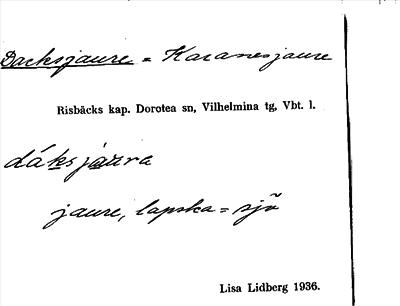 Dacksjaure = Karanesjaure
Risbäcks kap. Dorotea sn, Vilhelmina tg, Vbt. l.
dáksjávra
jaure, lapska = sjö
Lisa Lidberg 1936.